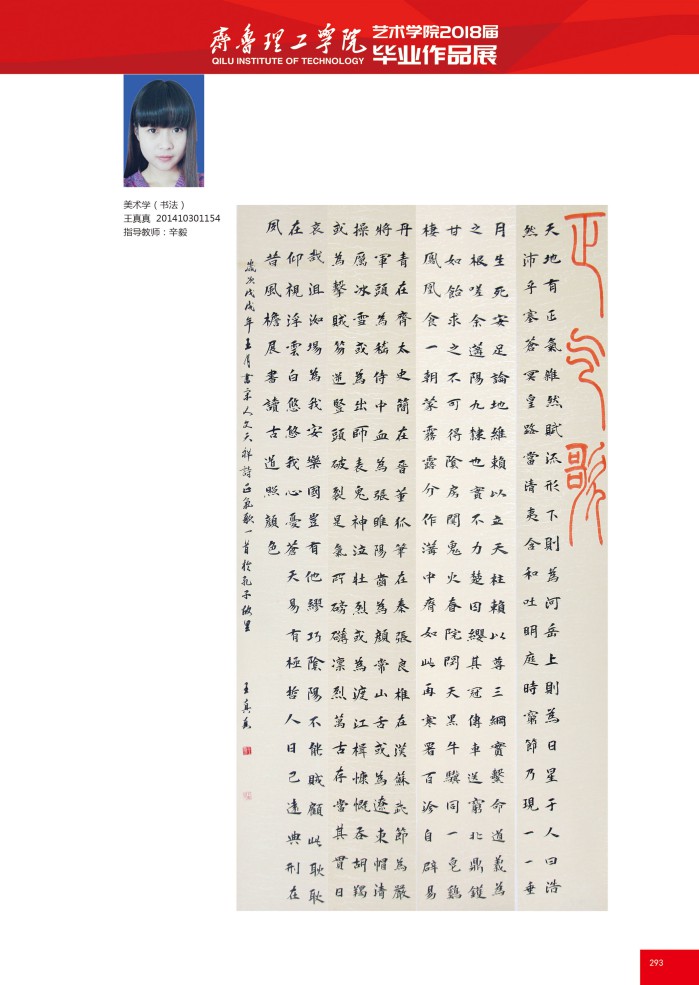 齊魯理工學院
QILU INSTITUTE OF TECHNOLOGY
艺术学院2018届
毕业作品展
美术学（书法）
王真真 201410301154
指导教师：辛毅
正气歌
天地有正氣雜然賦流形下則為河岳上則為日星于人曰浩
然沛乎塞蒼冥皇路當清夷含和吐明庭時窮節乃現一一垂
月生死安足論地維賴以立天柱賴以尊三綱實繫命道義為
之根嗟余遘陽九隸也實不力楚囚纓其冠傳車送窮北鼎鑊
甘如飴求之不可得陰房闃鬼火春院閟天黑牛驥同一皂鷄
棲鳳凰食一朝蒙霧露分作溝中瘠如此再寒暑百沴自辟易
丹青在齊太史簡在晉董狐筆在秦張良椎在漢蘇武節為嚴
將軍頭為嵇侍中血為張睢陽齒為顏常山舌或為遼東帽清
操厲冰雪或為出師表鬼神泣壯烈或為渡江楫慷慨吞胡羯
或為擊賊笏逆豎頭破裂是氣所磅礴凜烈萬古存當其貫日
哀哉沮洳場為我安樂國豈有他繆巧陰陽不能賊顧此耿耿
在仰視浮雲白悠悠我心憂蒼天易有極哲人日已遠典刑在
夙昔風檐展書讀古道照顏色
歲次戊戌年五月書宋人文天祥詩正氣歌一首於孔子故里
王真真
293